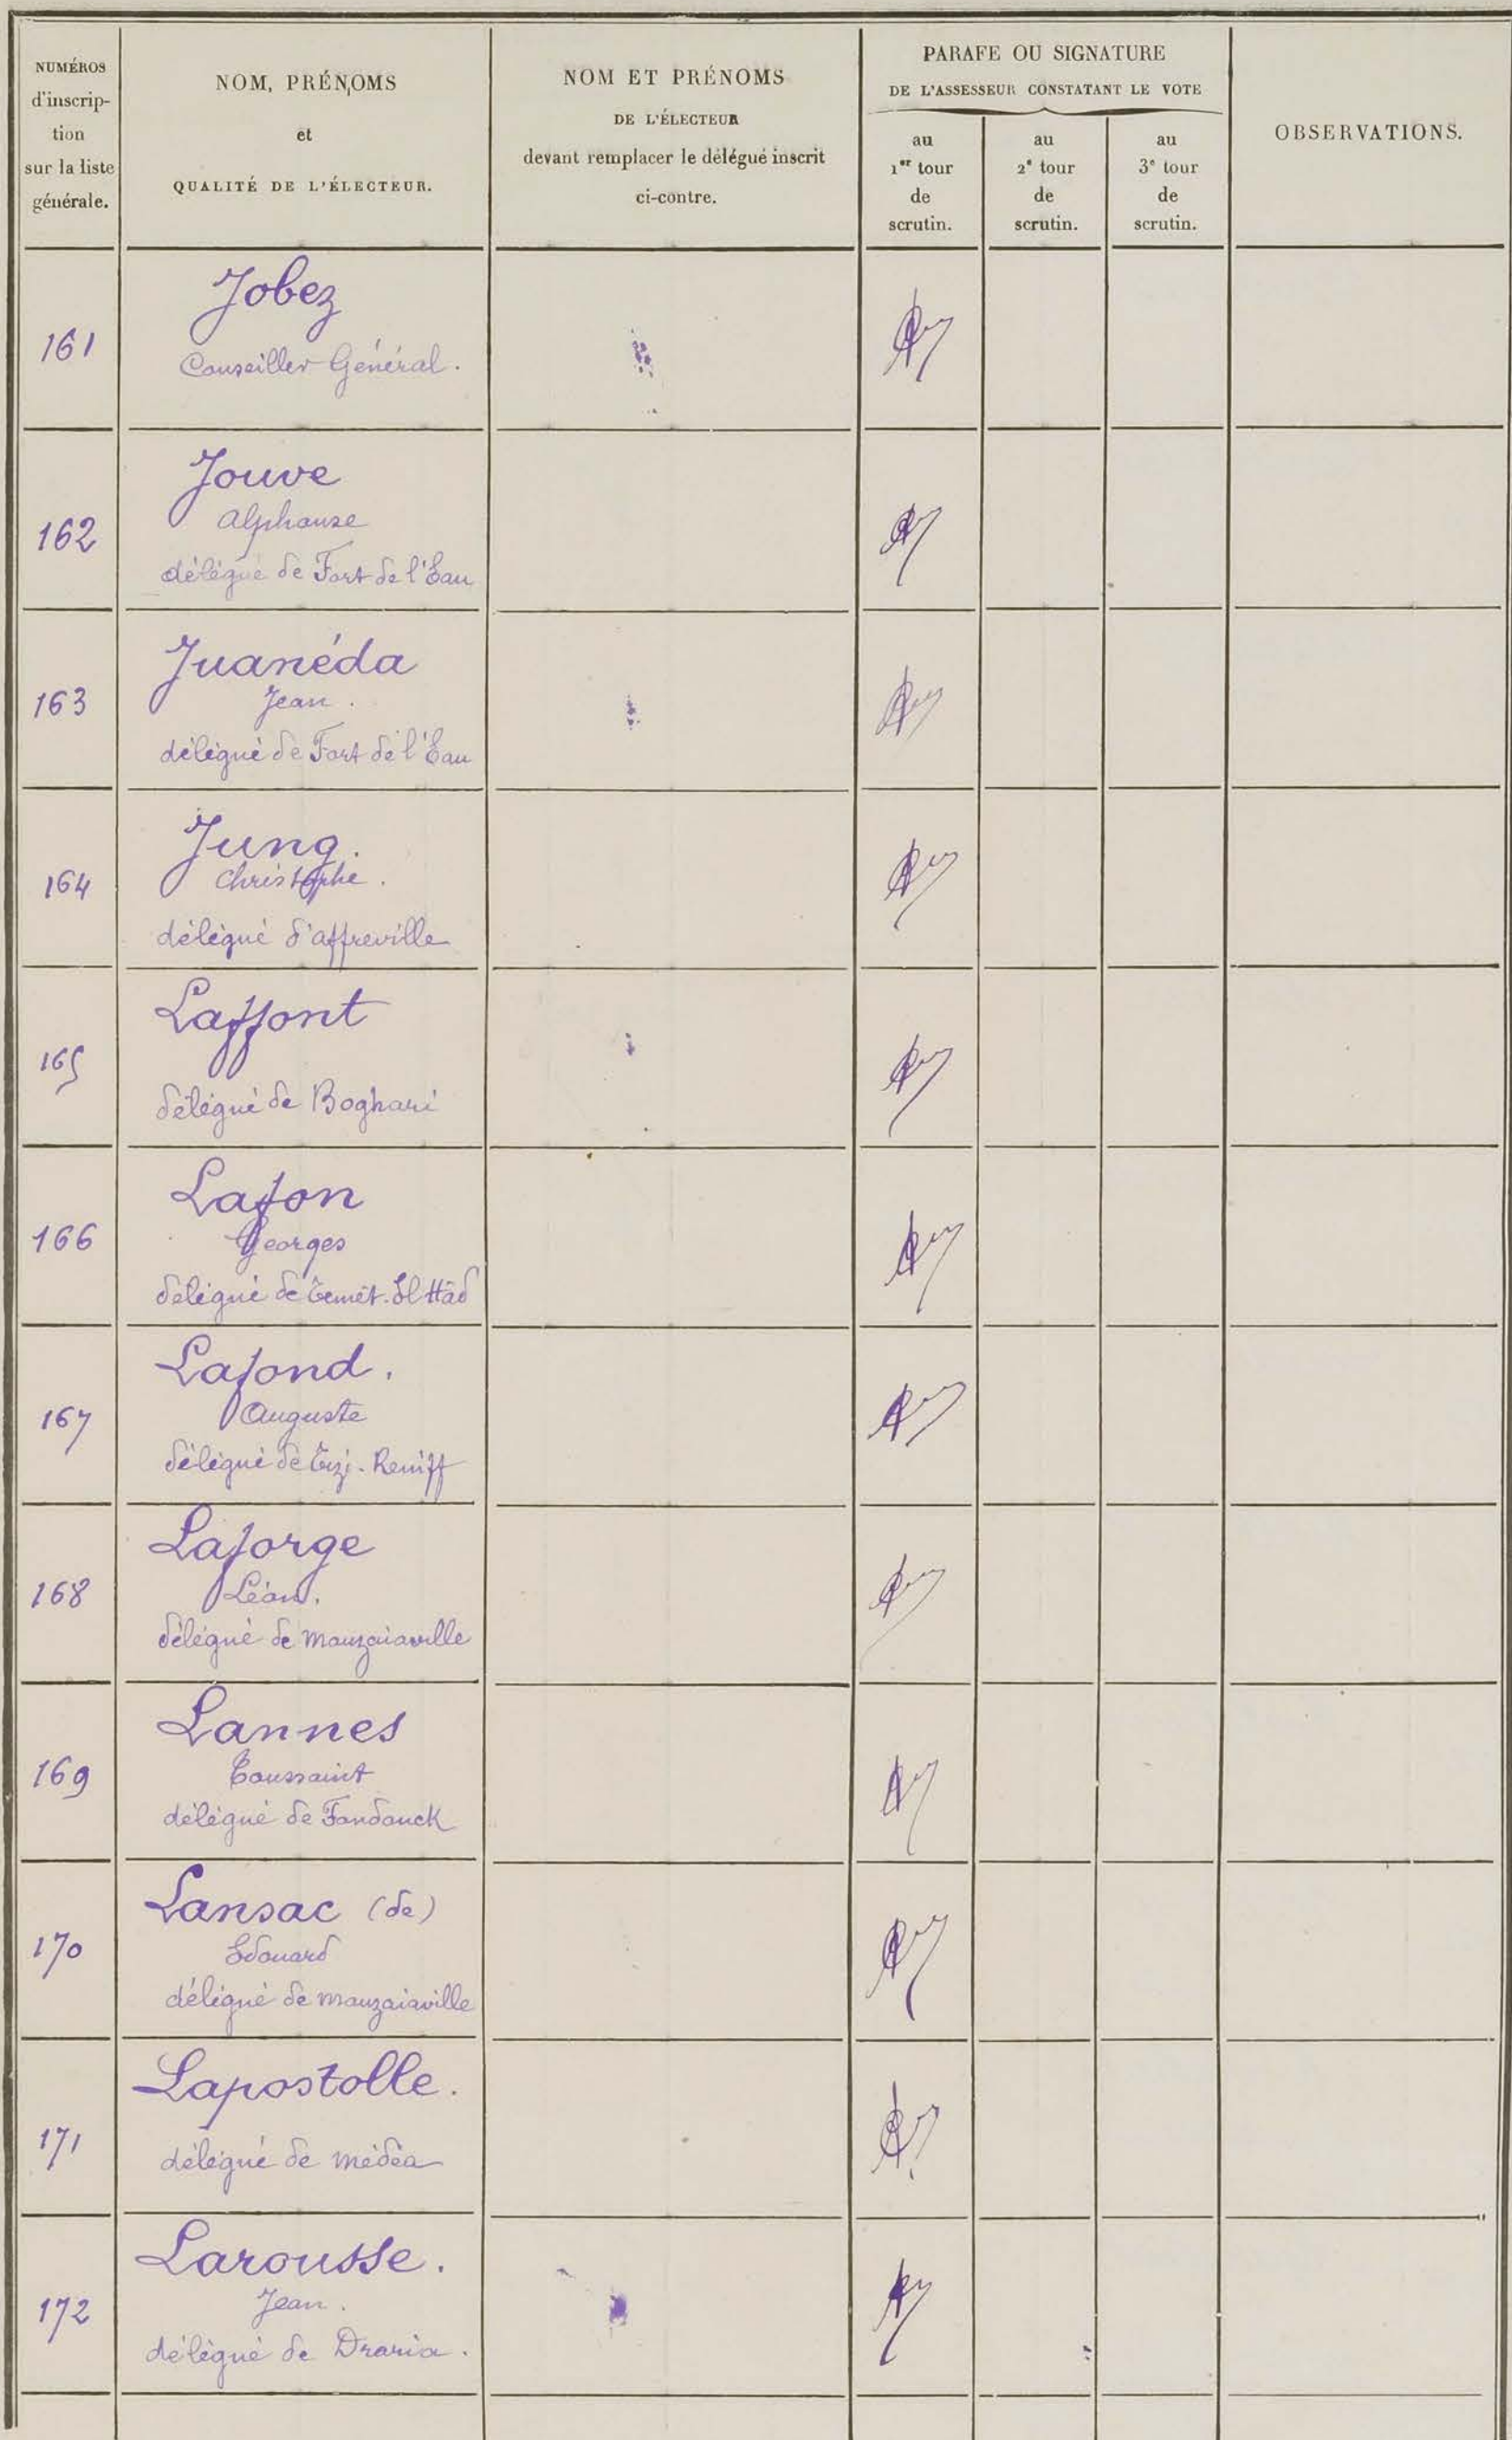 NUMÉROS
d'inscrip-
tion
sur la liste
générale.
NOM, PRÉNOMS
et
QUALITÉ DE L'ÉLECTEUR.
NOM ET PRÉNOMS
DE L'ÉLECTEUR
devant remplacer le délégué inscrit
ci-contre.
PARAFE OU SIGNATURE
DE L'ASSESSEUR CONSTATANT LE VOTE
au
1er tour
de
scrutin.
au
2e tour
de
scrutin.
au
3e tour
de
scrutin.
OBSERVATIONS.
161
Jobez
Conseiller Général.
162
Jouve
Alphonse
délégué de Fort de l'Eau
163
Juanéda
Jean.
délégué de Fort de l'Eau
164
Jung.
Christophe.
délégué d'Affreville
165
Laffont
délégué de Boghari
166
Lafon
Georges
délégué de Teniet-El Hâd
167
Lafond.
Auguste
délégué de Tizi-Reniff
168
Laforge
Léon.
délégué de Mouzaiaville
169
Lannes
Toussaint
délégué de Fondouck
170
Lansac (de)
Edouard
délégué de Mouzaiaville
171
Lapostolle.
délégué de Médéa
172
Larousse.
Jean.
délégué de Draria.